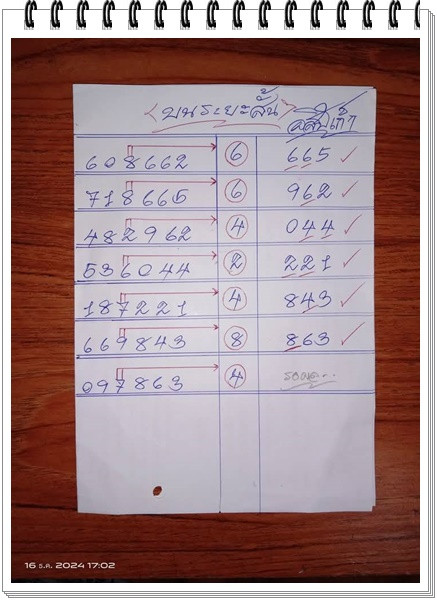 <บนระยะสั้น>
608662 6 665 ✓
718665 6 962 ✓
482962 4 044 ✓
536044 2 221 ✓
187221 4 843 ✓
669843 8 863 ✓
097863 4
16 ธ.ค. 2024 17:02